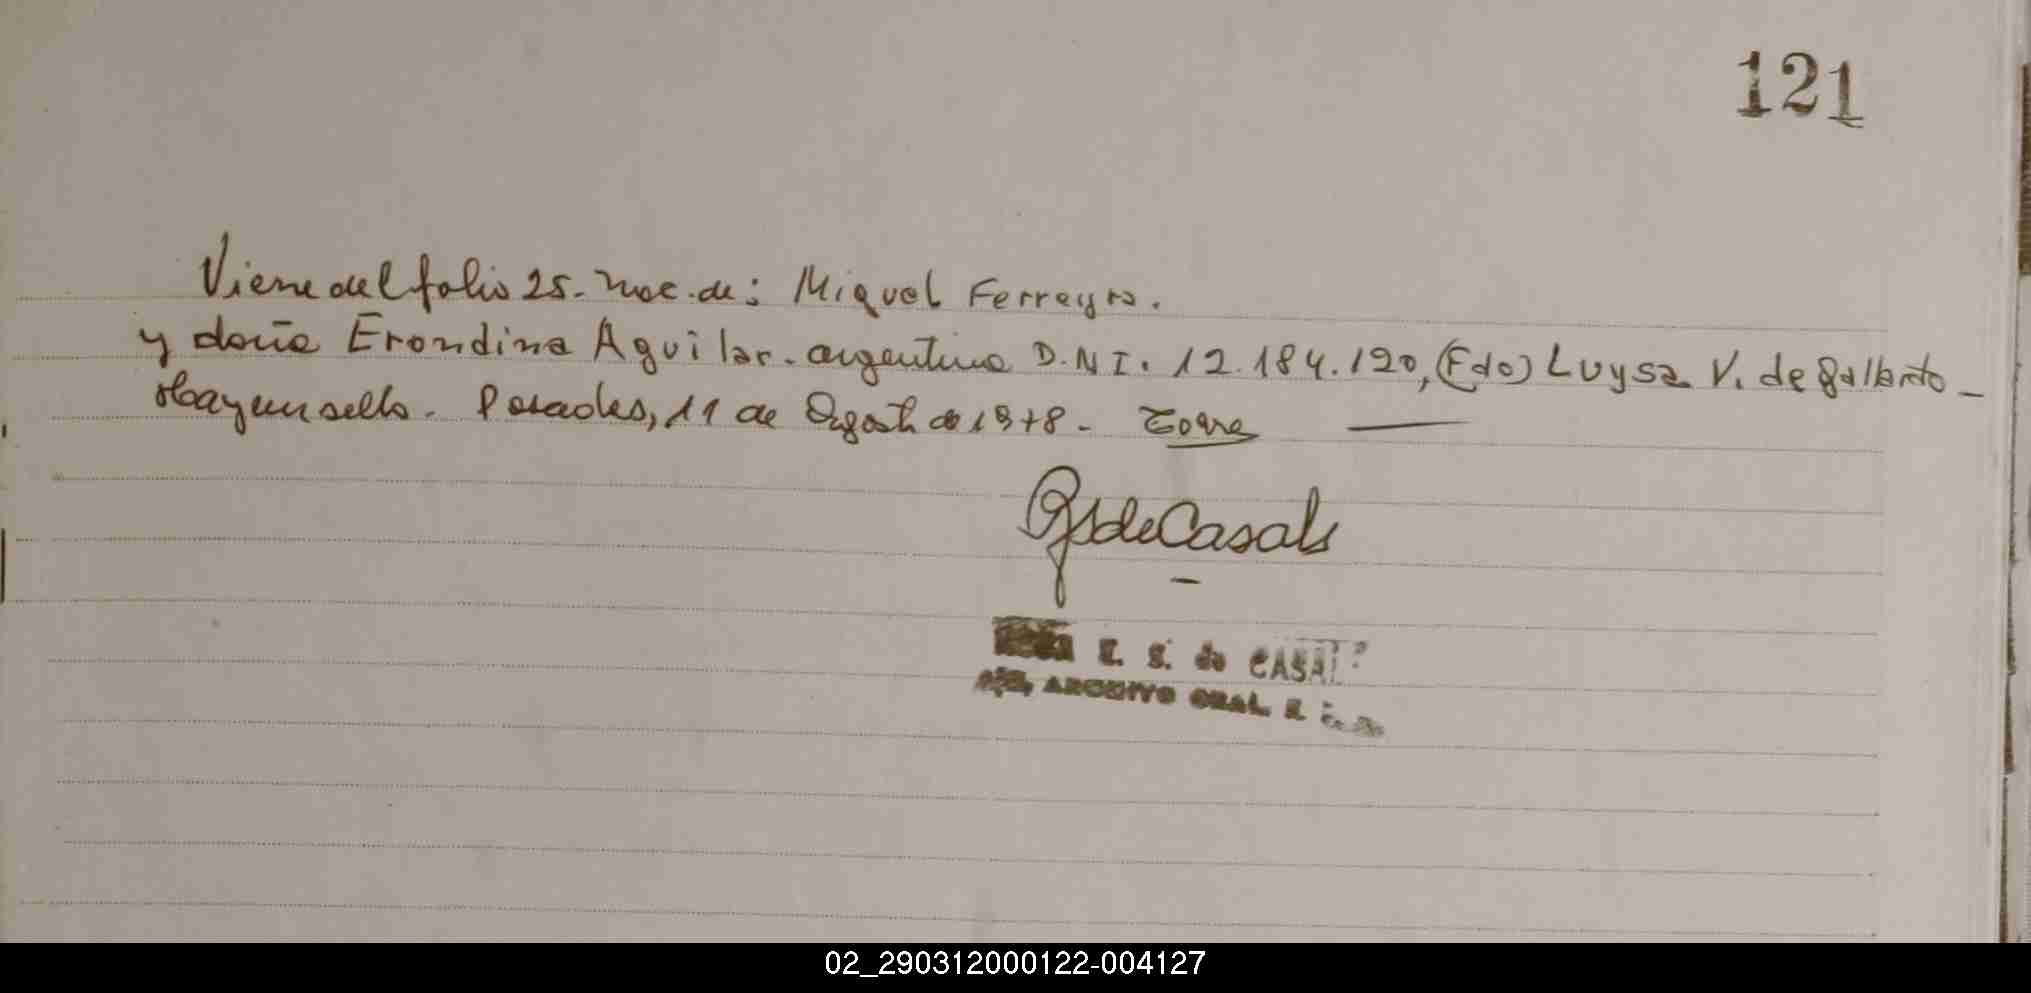 121
Viene del folio 25. Nac. de: Miguel Ferreyra.
y doña Erondina Aguilar. argentina D.N.I. 12.184.120, (Fdo) Luysa V. de Galbato -
Hay un sello. Posadas, 11 de Agosto de 1978.
de Casals
E. S. de CASAL
ARCHIVO GRAL. R
02_290312000122-004127